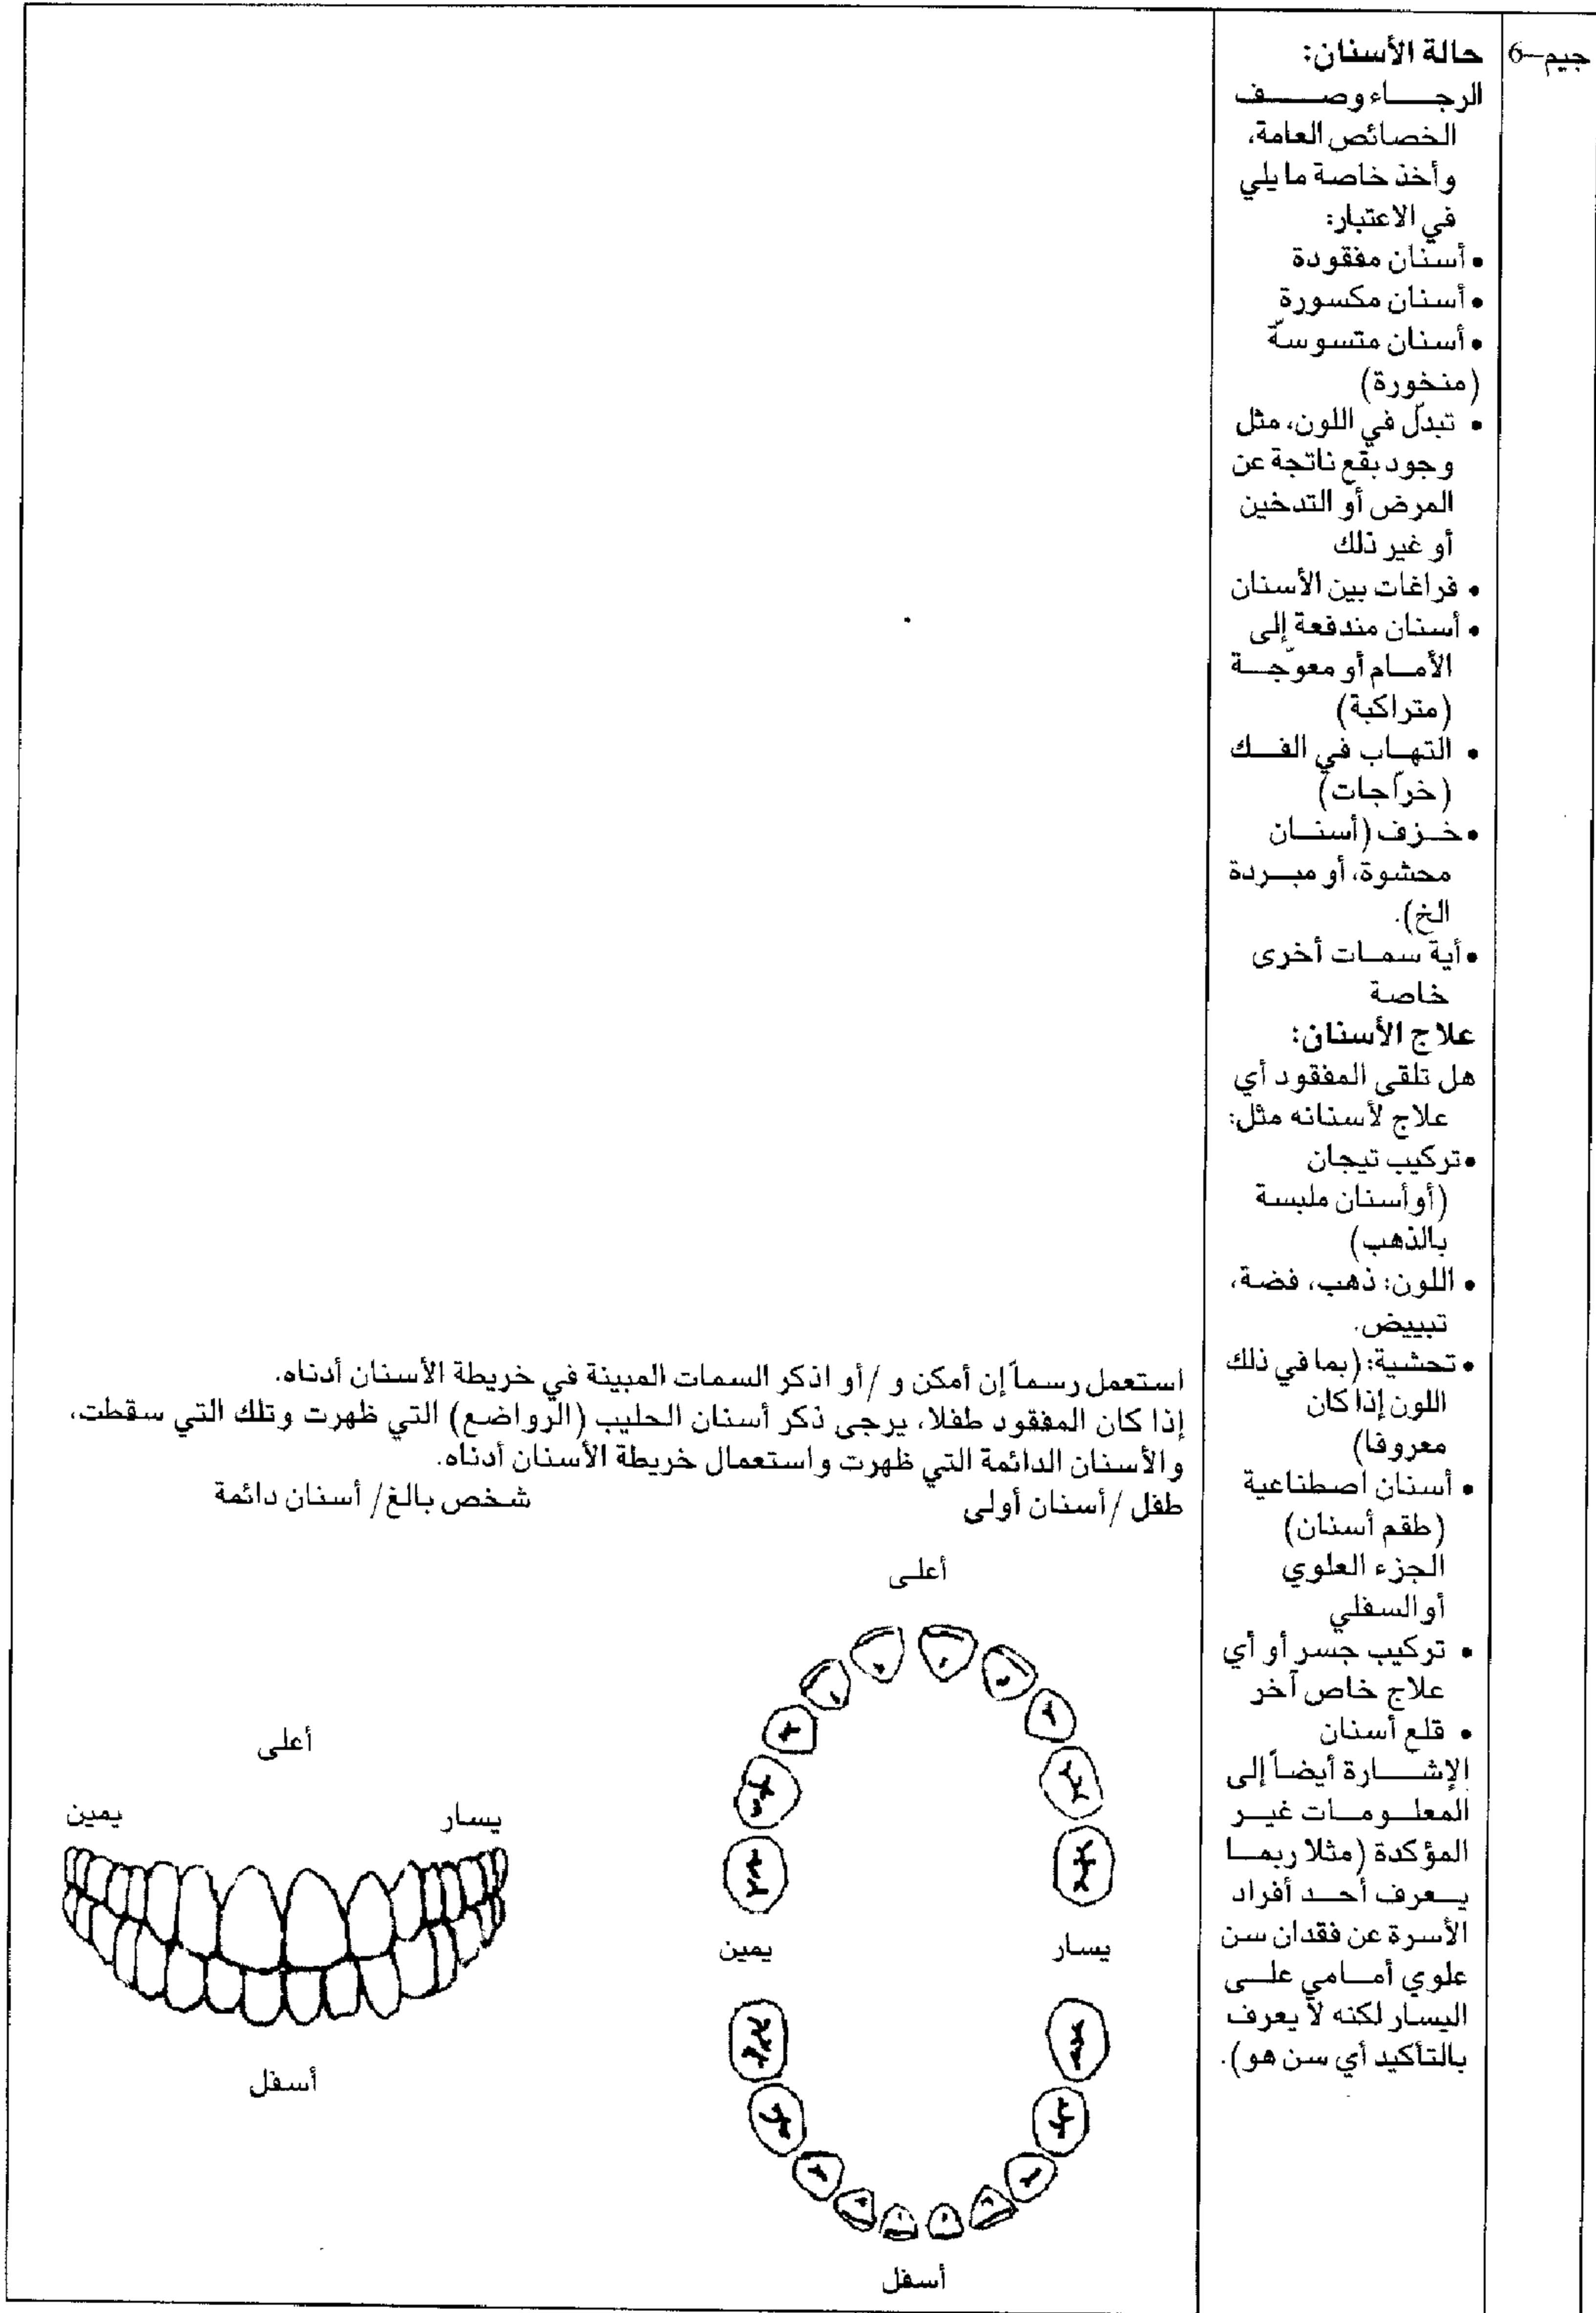 جيم–6
حالة الأسنان:
الرجاء وصف
الخصائص العامة،
وأخذ خاصة ما يلي
في الاعتبار:
• أسنان مفقودة
• أسنان مكسورة
• أسنان متسوسّة
(منخورة)
• تبدّل في اللون، مثل
وجود بقع ناتجة عن
المرض أو التدخين
أو غير ذلك
• فراغات بين الأسنان
• أسنان مندفعة إلى
الأمام أو معوّجة
(متراكبة)
• التهاب في الفك
(خرّاجات)
• خزف (أسنان
محشوة، أو مبردة
الخ).
• أية سمات أخرى
خاصة
علاج الأسنان:
هل تلقى المفقود أي
علاج لأسنانه مثل:
• تركيب تيجان
(أو أسنان ملبسة
بالذهب)
• اللون: ذهب، فضة،
تبييض.
• تحشية: (بما في ذلك
اللون إذا كان
معروفا)
• أسنان اصطناعية
(طقم أسنان)
الجزء العلوي
أو السفلي
• تركيب جسر أو أي
علاج خاص آخر
• قلع أسنان
الإشارة أيضاً إلى
المعلومات غير
المؤكدة (مثلا ربما
يعرف أحد أفراد
الأسرة عن فقدان سن
علوي أمامي على
اليسار لكنه لا يعرف
بالتأكيد أي سن هو).
استعمل رسماً إن أمكن و/أو اذكر السمات المبينة في خريطة الأسنان أدناه.
إذا كان المفقود طفلا، يرجى ذكر أسنان الحليب (الرواضع) التي ظهرت وتلك التي سقطت،
والأسنان الدائمة التي ظهرت واستعمال خريطة الأسنان أدناه.
طفل/أسنان أولى
شخص بالغ/ أسنان دائمة
أعلى
يسار
يمين
أسفل
أعلى
يسار
يمين
أسفل